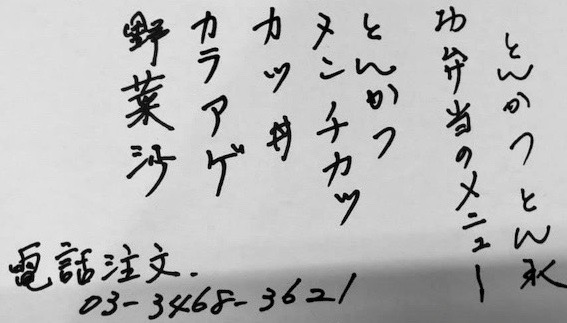 とんかつとん水
お弁当のメニュー
とんかつ
メンチカツ
カツ丼
カラアゲ
野菜沙
電話注文.
03-3468-3621